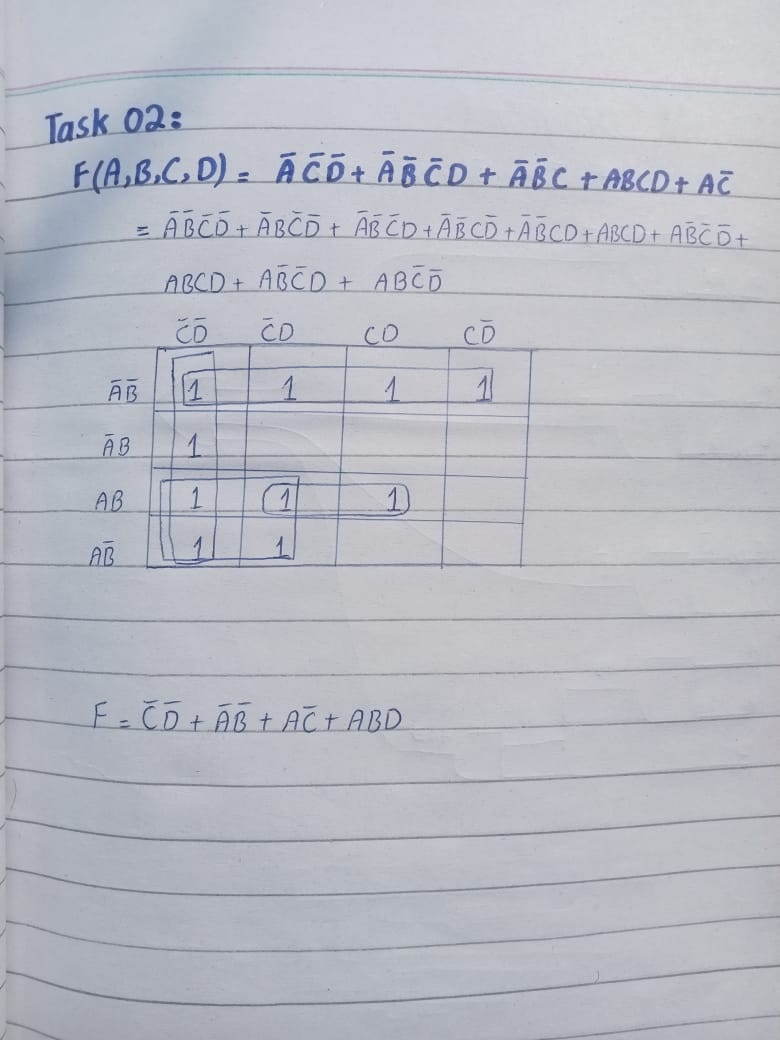 Task 02:
F(A,B,C,D) = A̅ C̅ D̅ + A̅ B̅ C̅ D + A̅ B̅ C + ABCD + AC̅
= A̅B̅C̅D̅ + A̅BC̅D̅ + A̅B̅C̅D + A̅B̅CD̅ + A̅B̅CD + ABCD + AB̅C̅D̅ +
ABCD + AB̅C̅D + ABC̅D̅
C̅D̅ C̅D CD CD̅
A̅B̅ 1 1 1 1
A̅B 1
AB 1 1 1
AB̅ 1 1
F = C̅D̅ + A̅B̅ + AC̅ + ABD